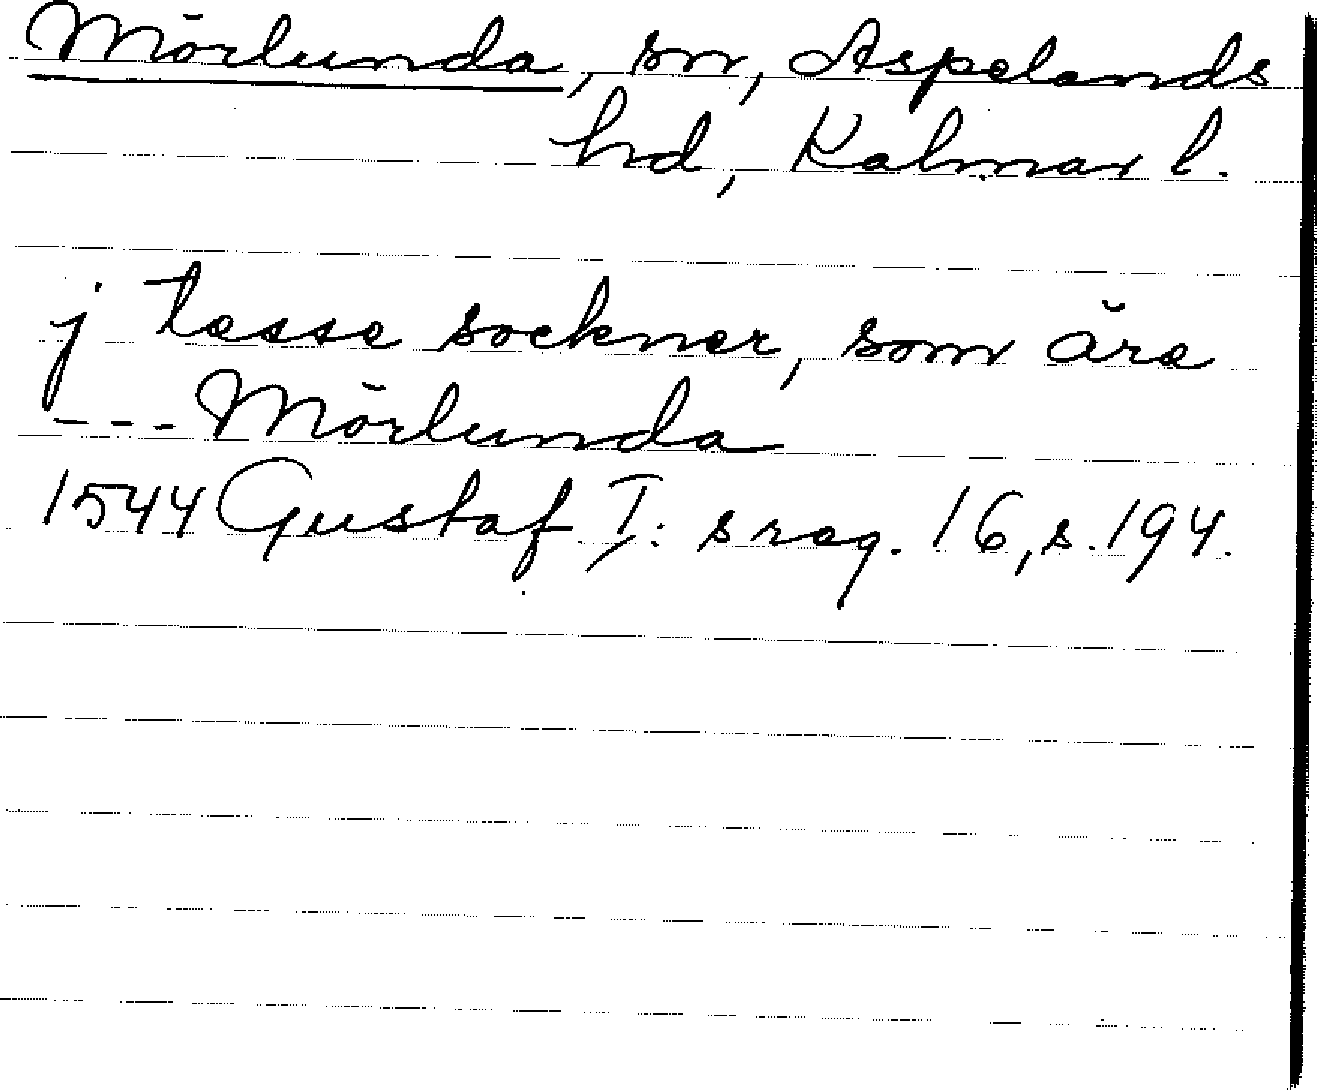 Mörlunda, sn, Aspelands
hd, Kalmar l.
j tesse sockner, som äre
--- Mörlunda
1544 Gustaf I: s reg. 16, s. 194.